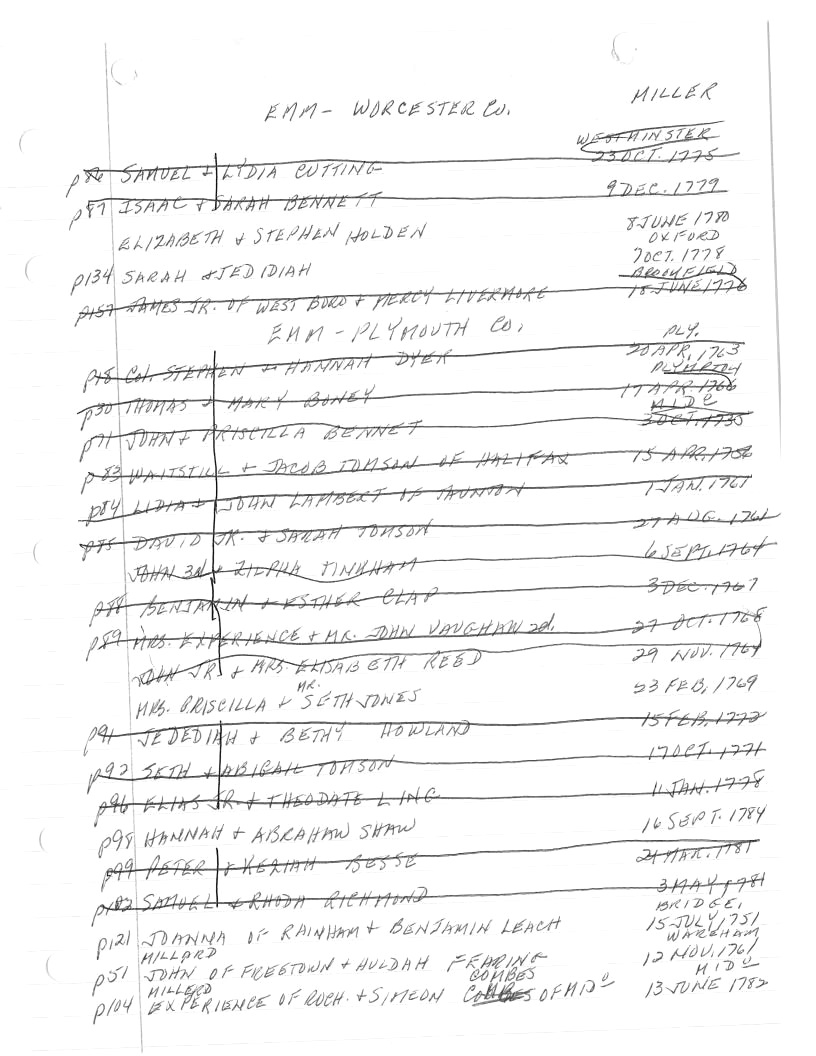 EMM - WORCESTER CO. MILLER
WESTMINSTER
p86 SAMUEL + LYDIA CUTTING 23 OCT. 1775
p87 ISAAC + SARAH BENNETT 9 DEC. 1779
ELIZABETH + STEPHEN HOLDEN 8 JUNE 1780
OXFORD
p134 SARAH + JEDIDIAH 7 OCT. 1778
BROOKFIELD
p157 JAMES JR. OF WEST BORO + MERCY LIVERMORE 18 JUNE 1776
EMM - PLYMOUTH CO. PLY.
p18 Col. STEPHEN + HANNAH DYER 20 APR. 1763
PLYMPTON
p30 THOMAS + MARY BONEY 17 APR. 1766
MIDo
p71 JOHN + PRISCILLA BENNET 3 OCT. 1735
p83 WAITSTILL + JACOB TOMSON OF HALIFAX 15 APR. 1756
p84 LIDIA + JOHN LAMBERT OF TAUNTON 1 JAN. 1761
p85 DAVID JR. + SARAH TOMSON 27 AUG. 1761
JOHN 3N + ZILPHA TINKHAM 6 SEPT. 1764
p88 BENJAMIN + ESTHER CLAP 3 DEC. 1767
p89 MRS. EXPERIENCE + MR. JOHN VAUGHAN 2d. 27 OCT. 1768
JOHN JR. + MRS. ELISABETH REED 29 NOV. 1764
MRS. PRISCILLA + MR. SETH JONES 23 FEB. 1769
p91 JEDEDIAH + BETHY HOWLAND 15 FEB. 1772
p92 SETH + ABIGAIL TOMSON 17 OCT. 1771
p96 ELIAS JR. + THEODATE LING 11 JAN. 1778
p98 HANNAH + ABRAHAM SHAW 16 SEPT. 1784
p99 PETER + KEZIAH BESSE 21 MAR. 1781
p102 SAMUEL + RHODA RICHMOND 3 MAY 1781
BRIDGE.
p121 JOANNA OF RAINHAM + BENJAMIN LEACH 15 JULY 1751
MILLARD WAREHAM
p51 JOHN OF FREETOWN + HULDAH FEARING 12 NOV. 1761
MILLERD COMBES MIDo
p104 EXPERIENCE OF ROCH. + SIMEON OF MIDo 13 JUNE 1782